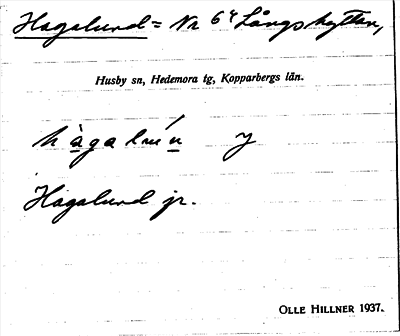 Hagalund = Nr 6⁴ Långshyttan,
Husby sn, Hedemora tg, Kopparbergs län.
hàgalún y
Hagalund jr.
OLLE HILLNER 1937.